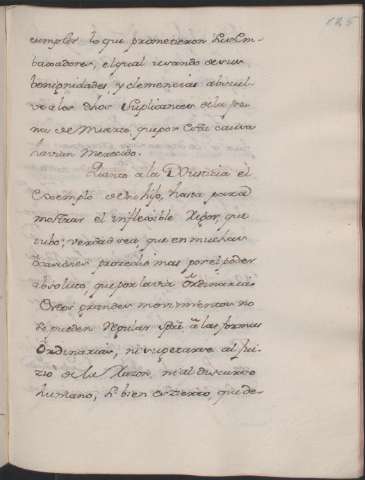 125
cumplir lo que prometieron sus Em-
baxadores, el qual usando de sus
benignidades, y clemencias absuel-
ve a los dhos Suplicantes de la pe-
na de Muerte, que por esta causa
havian merecido.
Quanto a la Justicia el
exemplo de su hijo, basta para
mostrar el inflexible rigor, que
tubo; verdad sea, que en muchas
ocasiones procedio mas por el poder
absoluto, que por la via ordinaria
Estos grandes movimientos no
se pueden regular a las formas
ordinarias, ni sugetarse al jui-
zio de la razon, ni al discurso
humano, si bien es cierto, que de-